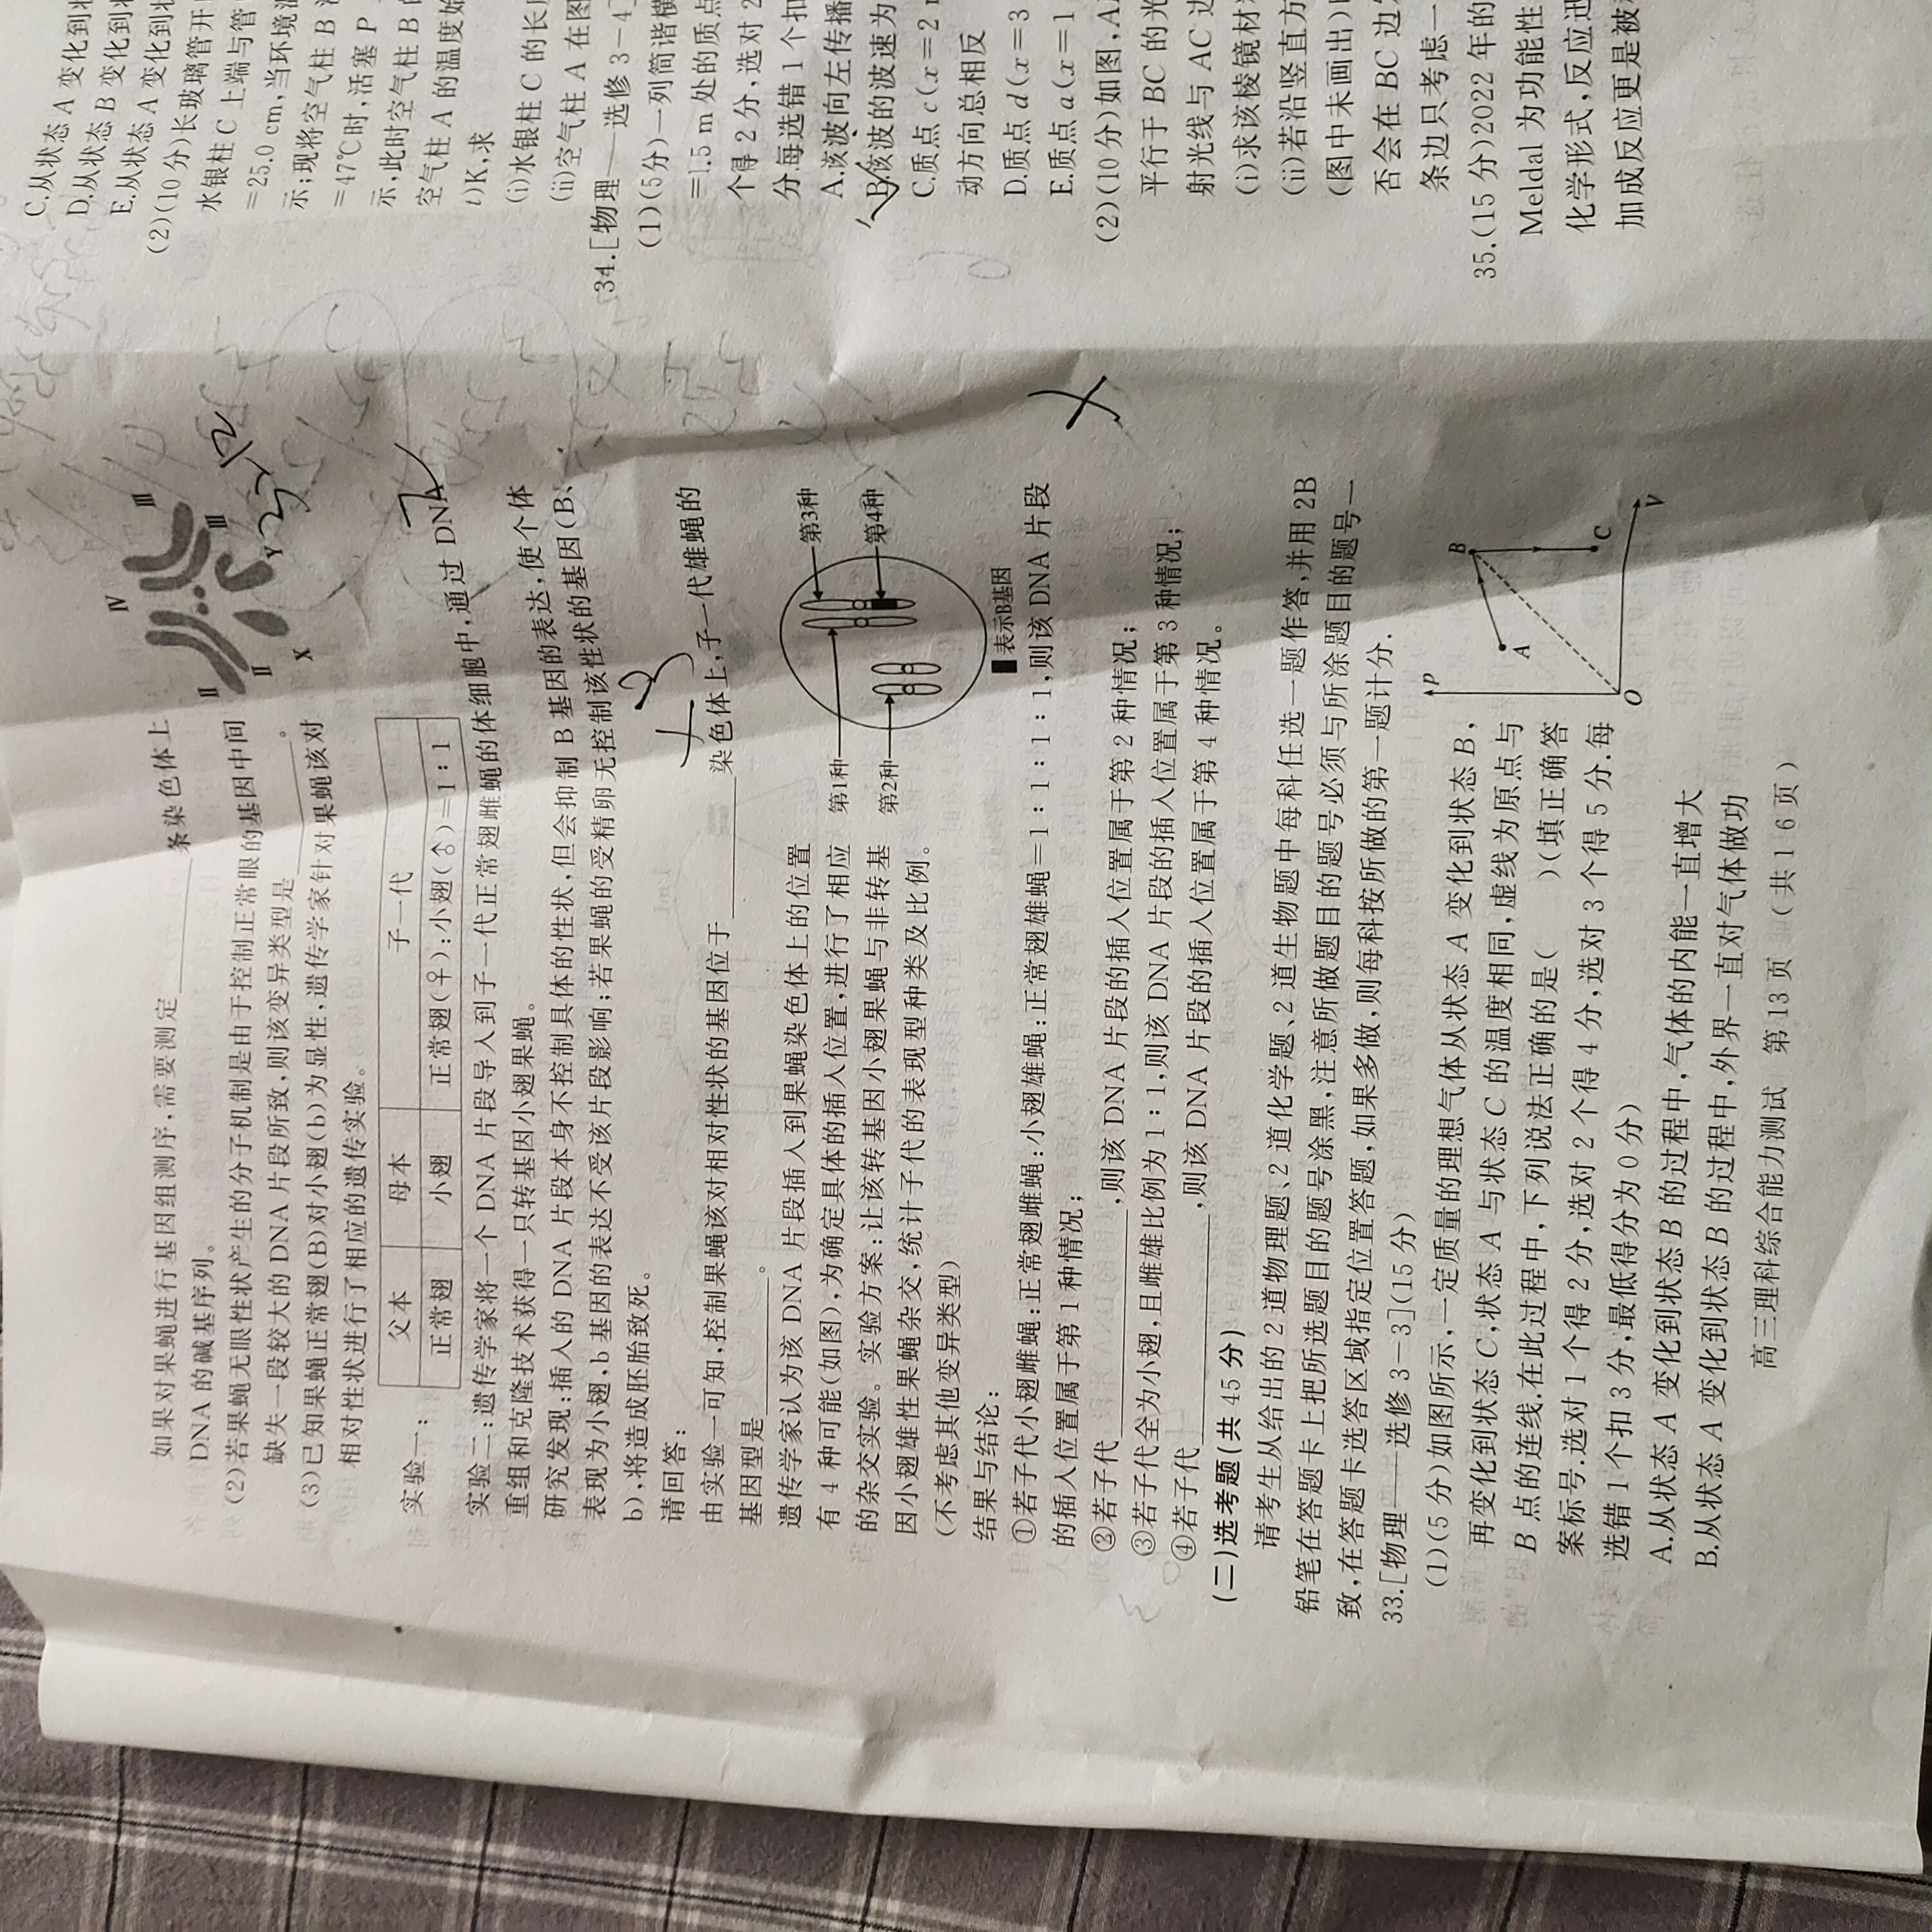 如果对果蝇进行基因组测序,需要测定________条染色体上
DNA 的碱基序列。
(2)若果蝇无眼性状产生的分子机制是由于控制正常眼的基因中间
缺失一段较大的 DNA 片段所致,则该变异类型是________。
(3)已知果蝇正常翅(B)对小翅(b)为显性;遗传学家针对果蝇该对
相对性状进行了相应的遗传实验。
II
II
IV
III
III
X
Y
实验一:
父本 母本 子一代
正常翅 小翅 正常翅(♀):小翅(♂)=1:1
实验二:遗传学家将一个 DNA 片段导入到子一代正常翅雌蝇的体细胞中,通过 DNA
重组和克隆技术获得一只转基因小翅果蝇。
研究发现:插入的 DNA 片段本身不控制具体的性状,但会抑制 B 基因的表达,使个体
表现为小翅,b 基因的表达不受该片段影响;若果蝇的受精卵无控制该性状的基因(B、
b),将造成胚胎致死。
请回答:
由实验一可知,控制果蝇该对相对性状的基因位于________染色体上,子一代雄蝇的
基因型是________。
遗传学家认为该 DNA 片段插入到果蝇染色体上的位置
有 4 种可能(如图),为确定具体的插入位置,进行了相应
的杂交实验。实验方案:让该转基因小翅果蝇与非转基
因小翅雄性果蝇杂交,统计子代的表现型种类及比例。
(不考虑其他变异类型)
第1种
第2种
第3种
第4种
表示B基因
结果与结论:
①若子代小翅雌蝇:正常翅雌蝇:小翅雄蝇:正常翅雄蝇=1:1:1:1,则该 DNA 片段
的插入位置属于第 1 种情况;
②若子代________,则该 DNA 片段的插入位置属于第 2 种情况;
③若子代全为小翅,且雌雄比例为 1:1,则该 DNA 片段的插入位置属于第 3 种情况;
④若子代________,则该 DNA 片段的插入位置属于第 4 种情况。
(二)选考题(共 45 分)
请考生从给出的 2 道物理题、2 道化学题、2 道生物题中每科任选一题作答,并用 2B
铅笔在答题卡上把所选题目的题号涂黑,注意所做题目的题号必须与所涂题目的题号一
致,在答题卡选答区域指定位置答题,如果多做,则每科按所做的第一题计分.
33.[物理——选修 3-3](15 分)
(1)(5 分)如图所示,一定质量的理想气体从状态 A 变化到状态 B,
再变化到状态 C,状态 A 与状态 C 的温度相同,虚线为原点与
B 点的连线.在此过程中,下列说法正确的是( )(填正确答
案标号.选对 1 个得 2 分,选对 2 个得 4 分,选对 3 个得 5 分.每
选错 1 个扣 3 分,最低得分为 0 分)
A.从状态 A 变化到状态 B 的过程中,气体的内能一直增大
B.从状态 A 变化到状态 B 的过程中,外界一直对气体做功
P
A
B
C
O
V
高三理科综合能力测试 第13页(共16页)
C.从状态 A 变化到状
D.从状态 B 变化到
E.从状态 A 变化到状
(2)(10 分)长玻璃管开
水银柱 C 上端与管
=25.0 cm,当环境温
示;现将空气柱 B
=47℃时,活塞 P
示,此时空气柱 B 的
空气柱 A 的温度始
t)K,求
(i)水银柱 C 的长
(ii)空气柱 A 在图
34.[物理——选修 3-4]
(1)(5分)一列简谐横
=1.5 m 处的质点
个得 2 分,选对 2
分.每选错 1 个扣
A.该波向左传播
B.该波的波速为
C.质点 c(x=2
动方向总相反
D.质点 d(x=3
E.质点 a(x=1
(2)(10 分)如图,A
平行于 BC 的光
射光线与 AC 边
(i)求该棱镜材
(ii)若沿竖直方
(图中未画出)
否会在 BC 边
条边只考虑一
35.(15 分)2022 年的
Meldal 为功能性
化学形式,反应迅
加成反应更是被